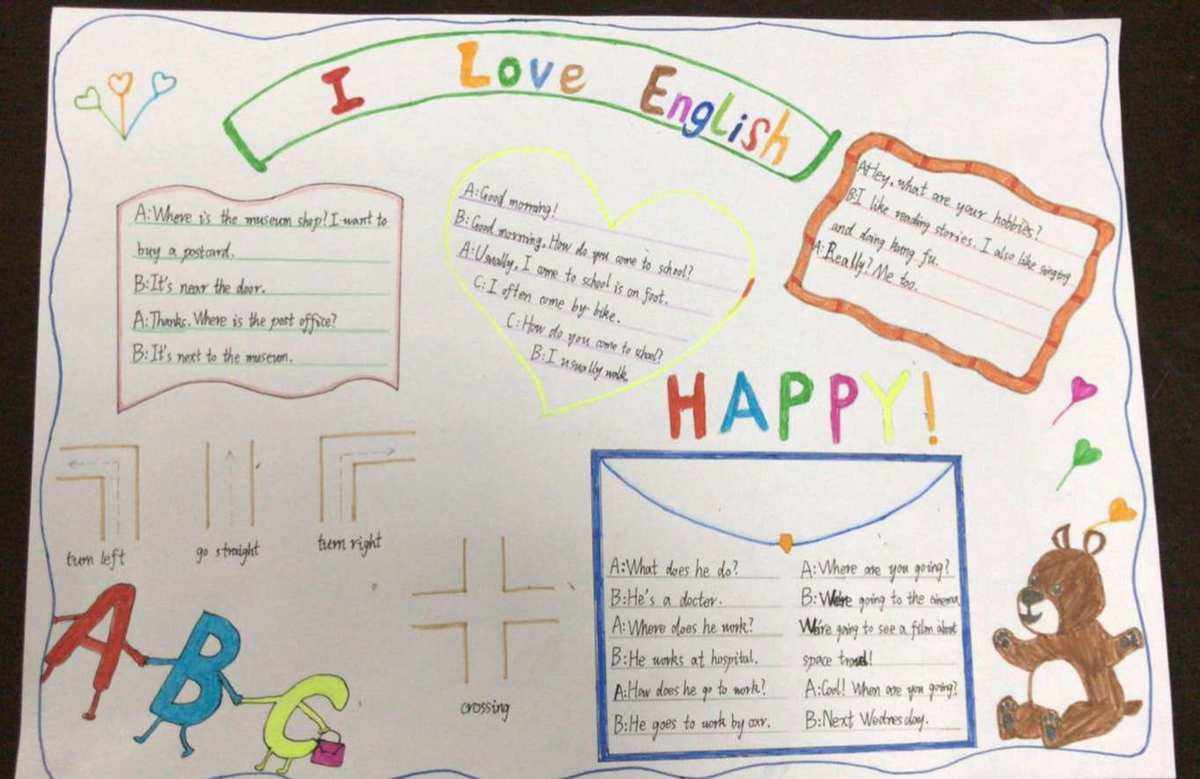 I Love English
A:Where is the museum shop? I want to
buy a postcard.
B:It's near the door.
A:Thanks. Where is the post office?
B:It's next to the museum.
A:Good morning!
B:Good morning. How do you come to school?
A:Usually, I come to school is on foot.
C:I often come by bike.
C:How do you come to school?
B:I usually walk.
A:Hey, what are your hobbies?
B:I like reading stories. I also like singing
and doing kung fu.
A:Really? Me too.
HAPPY!
turn left
go straight
turn right
crossing
A B C
A:What does he do?
B:He's a doctor.
A:Where does he work?
B:He works at hospital.
A:How does he go to work?
B:He goes to work by car.
A:Where are you going?
B:We're going to the cinema
We're going to see a film about
space travel!
A:Cool! When are you going?
B:Next Wednesday.